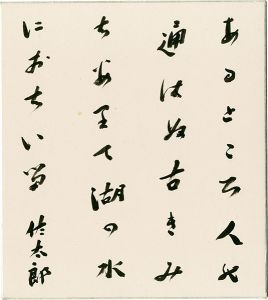 あるところ人の
通はぬ古きみ
ちありて湖の水
におちいる 佐太郎